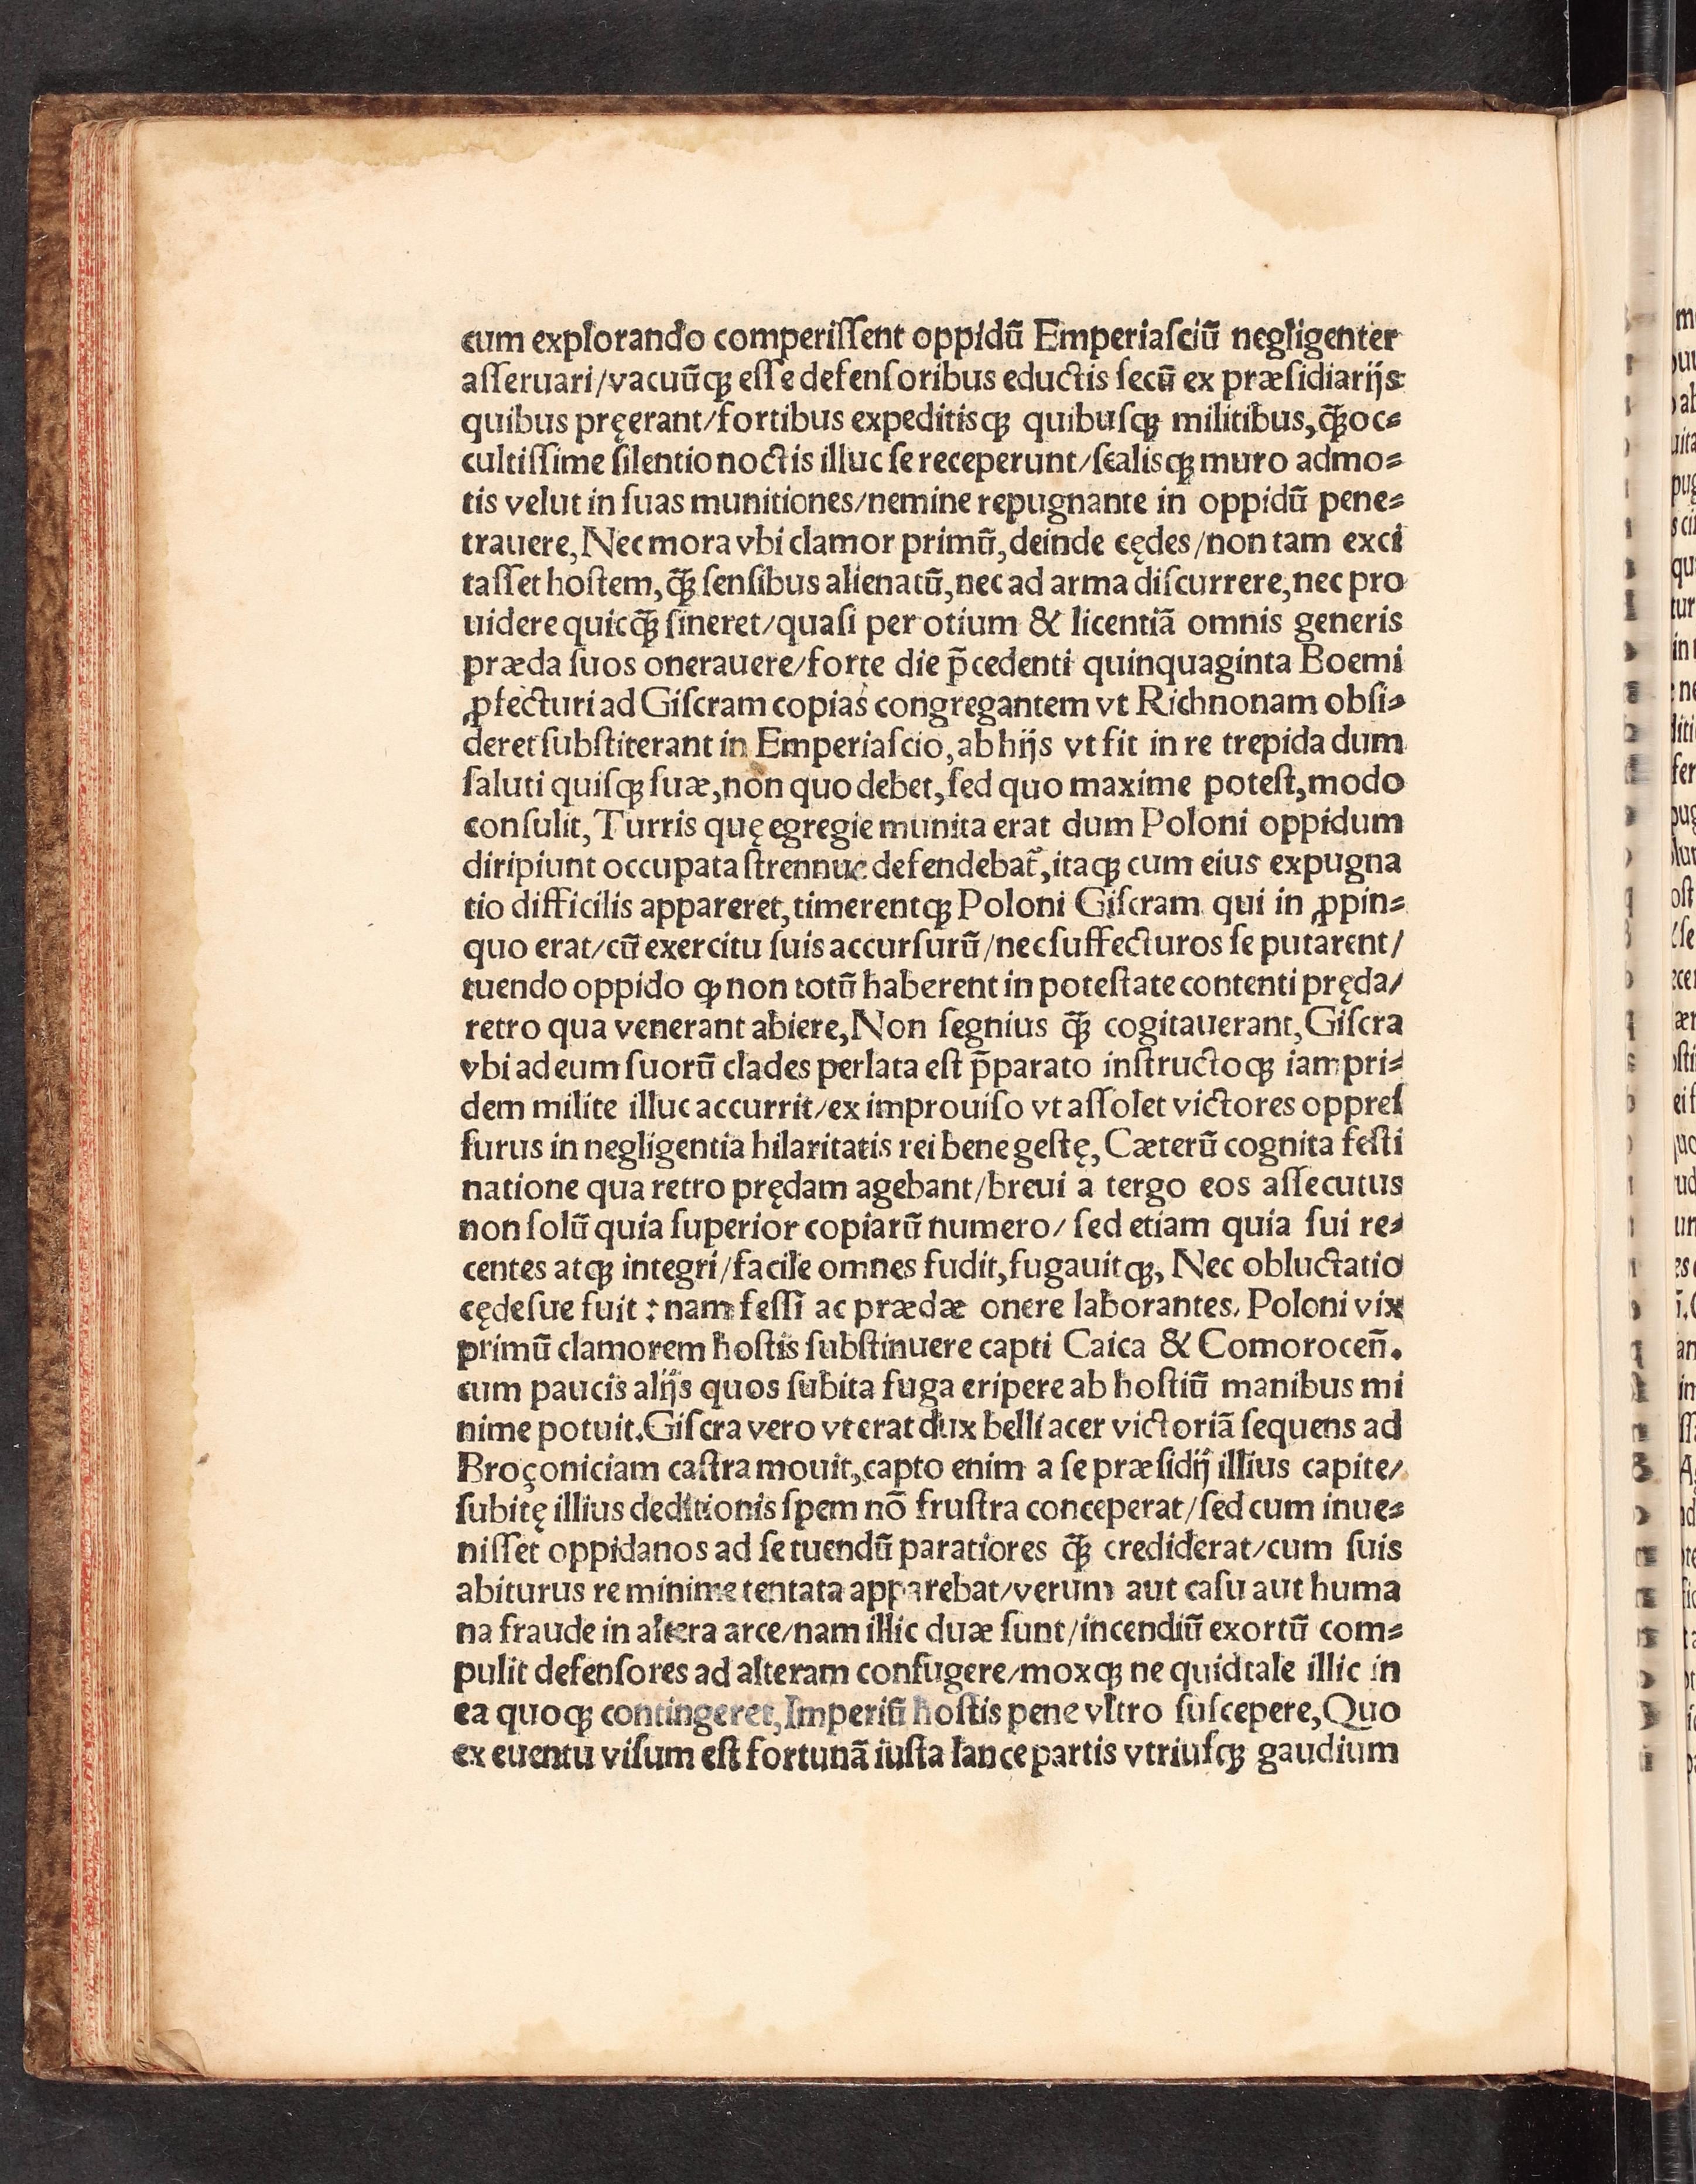 cum explorando comperiſſent oppidū Emperiaſciū negligenter
aſſeruari/vacuūqꝫ eſſe defenſoribus eductis ſecū ex præſidiarijs
quibus pręerant/fortibus expeditisqꝫ quibuſqꝫ militibus,q̄ꝫ oc⸗
cultiſſime ſilentio noctis illuc ſe receperunt/ſcalisqꝫ muro admo⸗
tis velut in ſuas munitiones/nemine repugnante in oppidū pene⸗
trauere, Nec mora vbi clamor primū, deinde cędes/non tam exci
taſſet hoſtem, q̄ꝫ ſenſibus alienatū, nec ad arma diſcurrere, nec pro
uidere quicq̄ꝫ ſineret/quaſi per otium & licentiā omnis generis
præda ſuos onerauere/forte die p̄cedenti quinquaginta Boemi
ꝓfecturi ad Giſcram copias congregantem vt Richnonam obſi⸗
deret ſubſtiterant in Emperiaſcio, ab hijs vt fit in re trepida dum
ſaluti quiſqꝫ ſuæ, non quo debet, ſed quo maxime poteſt, modo
conſulit, Turris quę egregie munita erat dum Poloni oppidum
diripiunt occupata ſtrennue defendebat᷑, itaqꝫ cum eius expugna
tio difficilis appareret, timerentqꝫ Poloni Giſcram qui in ꝓpin⸗
quo erat/cū exercitu ſuis accurſurū/nec ſuffecturos ſe putarent/
tuendo oppido ꝙ non totū haberent in poteſtate contenti pręda/
retro qua venerant abiere, Non ſegnius q̄ꝫ cogitauerant, Giſcra
vbi ad eum ſuorū clades perlata eſt p̄parato inſtructoqꝫ iam pri⸗
dem milite illuc accurrit/ex improuiſo vt aſſolet victores oppreſ
ſurus in negligentia hilaritatis rei bene geſtę, Cæterū cognita feſti
natione qua retro prędam agebant/breui a tergo eos aſſecutus
non ſolū quia ſuperior copiarū numero/ ſed etiam quia ſui re⸗
centes atqꝫ integri/facile omnes fudit, fugauitqꝫ, Nec obluctatio
cędeſue fuit : nam feſſi ac prædæ onere laborantes, Poloni vix
primū clamorem hoſtis ſubſtinuere capti Caica & Comoroceñ.
cum paucis alijs quos ſubita fuga eripere ab hoſtiū manibus mi
nime potuit. Giſcra vero vt erat dux belli acer victoriā ſequens ad
Broçoniciam caſtra mouit, capto enim a ſe præſidij illius capite/
ſubitę illius deditionis ſpem nō fruſtra conceperat/ſed cum inue⸗
niſſet oppidanos ad ſe tuendū paratiores q̄ꝫ crediderat/cum ſuis
abiturus re minime tentata apparebat/verum aut caſu aut huma
na fraude in altera arce/nam illic duæ ſunt/incendiū exortū com⸗
pulit defenſores ad alteram confugere/moxqꝫ ne quid tale illic in
ea quoqꝫ contingeret, Imperiū hoſtis pene vltro ſuſcepere, Quo
ex euentu viſum eſt fortunā iuſta lance partis vtriuſqꝫ gaudium